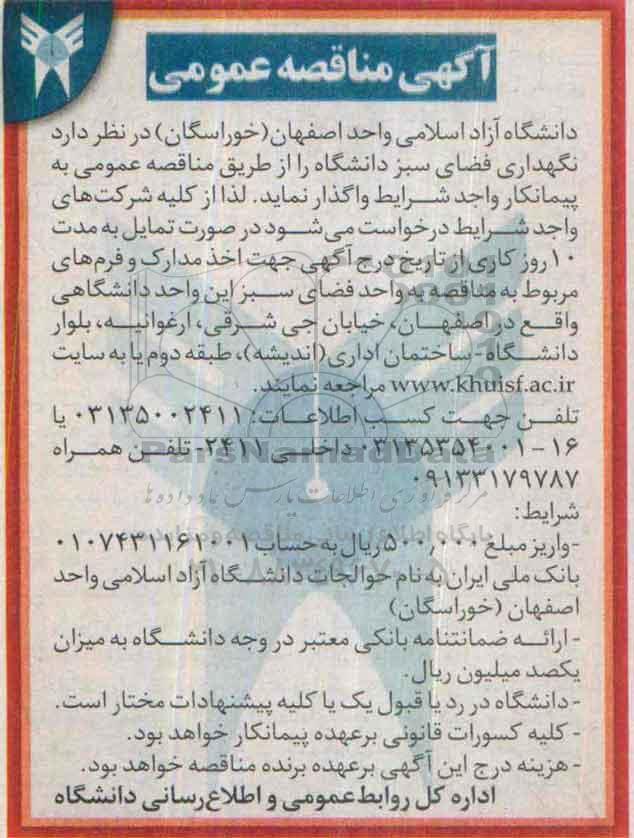 آگهی مناقصه عمومی
دانشگاه آزاد اسلامی واحد اصفهان(خوراسگان) در نظر دارد
نگهداری فضای سبز دانشگاه را از طریق مناقصه عمومی به
پیمانکار واجد شرایط واگذار نماید. لذا از کلیه شرکت‌های
واجد شرایط درخواست می‌شود در صورت تمایل به مدت
۱۰ روز کاری از تاریخ درج آگهی جهت اخذ مدارک و فرم‌های
مربوط به مناقصه به واحد فضای سبز این واحد دانشگاهی
واقع در اصفهان، خیابان جی شرقی، ارغوانیه، بلوار
دانشگاه-ساختمان اداری(اندیشه)، طبقه دوم یا به سایت
www.khuisf.ac.ir مراجعه نمایند.
تلفن جهت کسب اطلاعات: ۰۳۱۳۵۰۰۲۴۱۱ یا
۱۶-۰۳۱۳۵۳۵۴۰۰۱ داخلی ۲۴۱۱- تلفن همراه
۰۹۱۳۳۱۷۹۷۸۷
شرایط:
-واریز مبلغ ۵۰۰٫۰۰۰ ریال به حساب ۰۱۰۷۴۳۱۱۶۱۰۰۱
بانک ملی ایران به نام حوالجات دانشگاه آزاد اسلامی واحد
اصفهان (خوراسگان)
- ارائه ضمانتنامه بانکی معتبر در وجه دانشگاه به میزان
یکصد میلیون ریال.
- دانشگاه در رد یا قبول یک یا کلیه پیشنهادات مختار است.
- کلیه کسورات قانونی برعهده پیمانکار خواهد بود.
- هزینه درج این آگهی برعهده برنده مناقصه خواهد بود.
اداره کل روابط عمومی و اطلاع رسانی دانشگاه